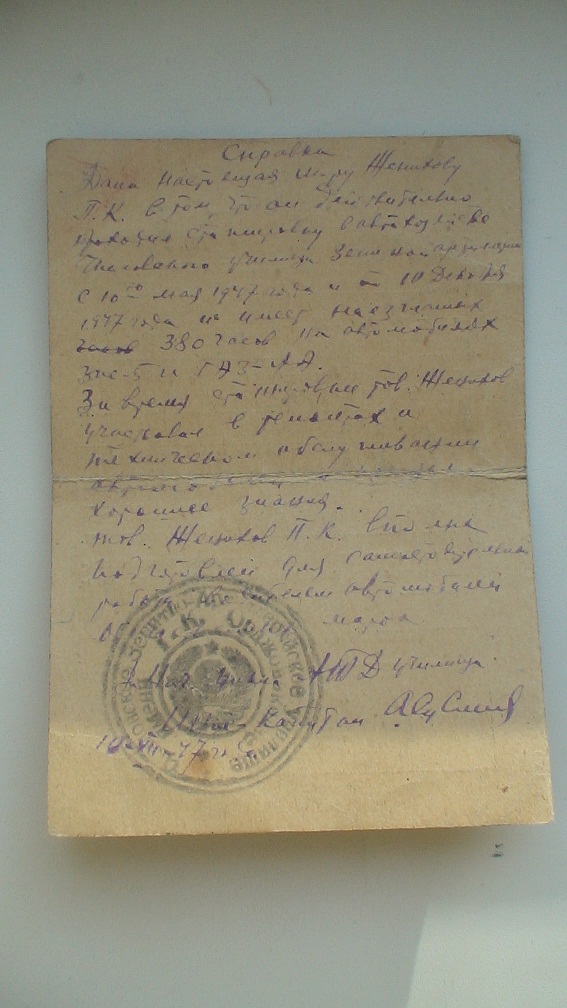 Справка
Дана настоящая Женихову
П.К. в том, что он действительно
проходил стажировку в автохозяйстве
училища Зенитной артиллерии
с 10го мая 1947 года и по 10 Декабря
1947 года и имеет наезженных
часов 380 часов на автомобилях
Зис-5 и ГАЗ-АА.
За время стажировки тов. Женихов
участвовал в ремонтах и
техническом обслуживании
хорошие знания.
тов. Женихов П.К. вполне
подготовлен для самостоятельной
автомобилей
марок
училища
капитан
10-XII-47 г.
училище
Орджоникидзе
имени